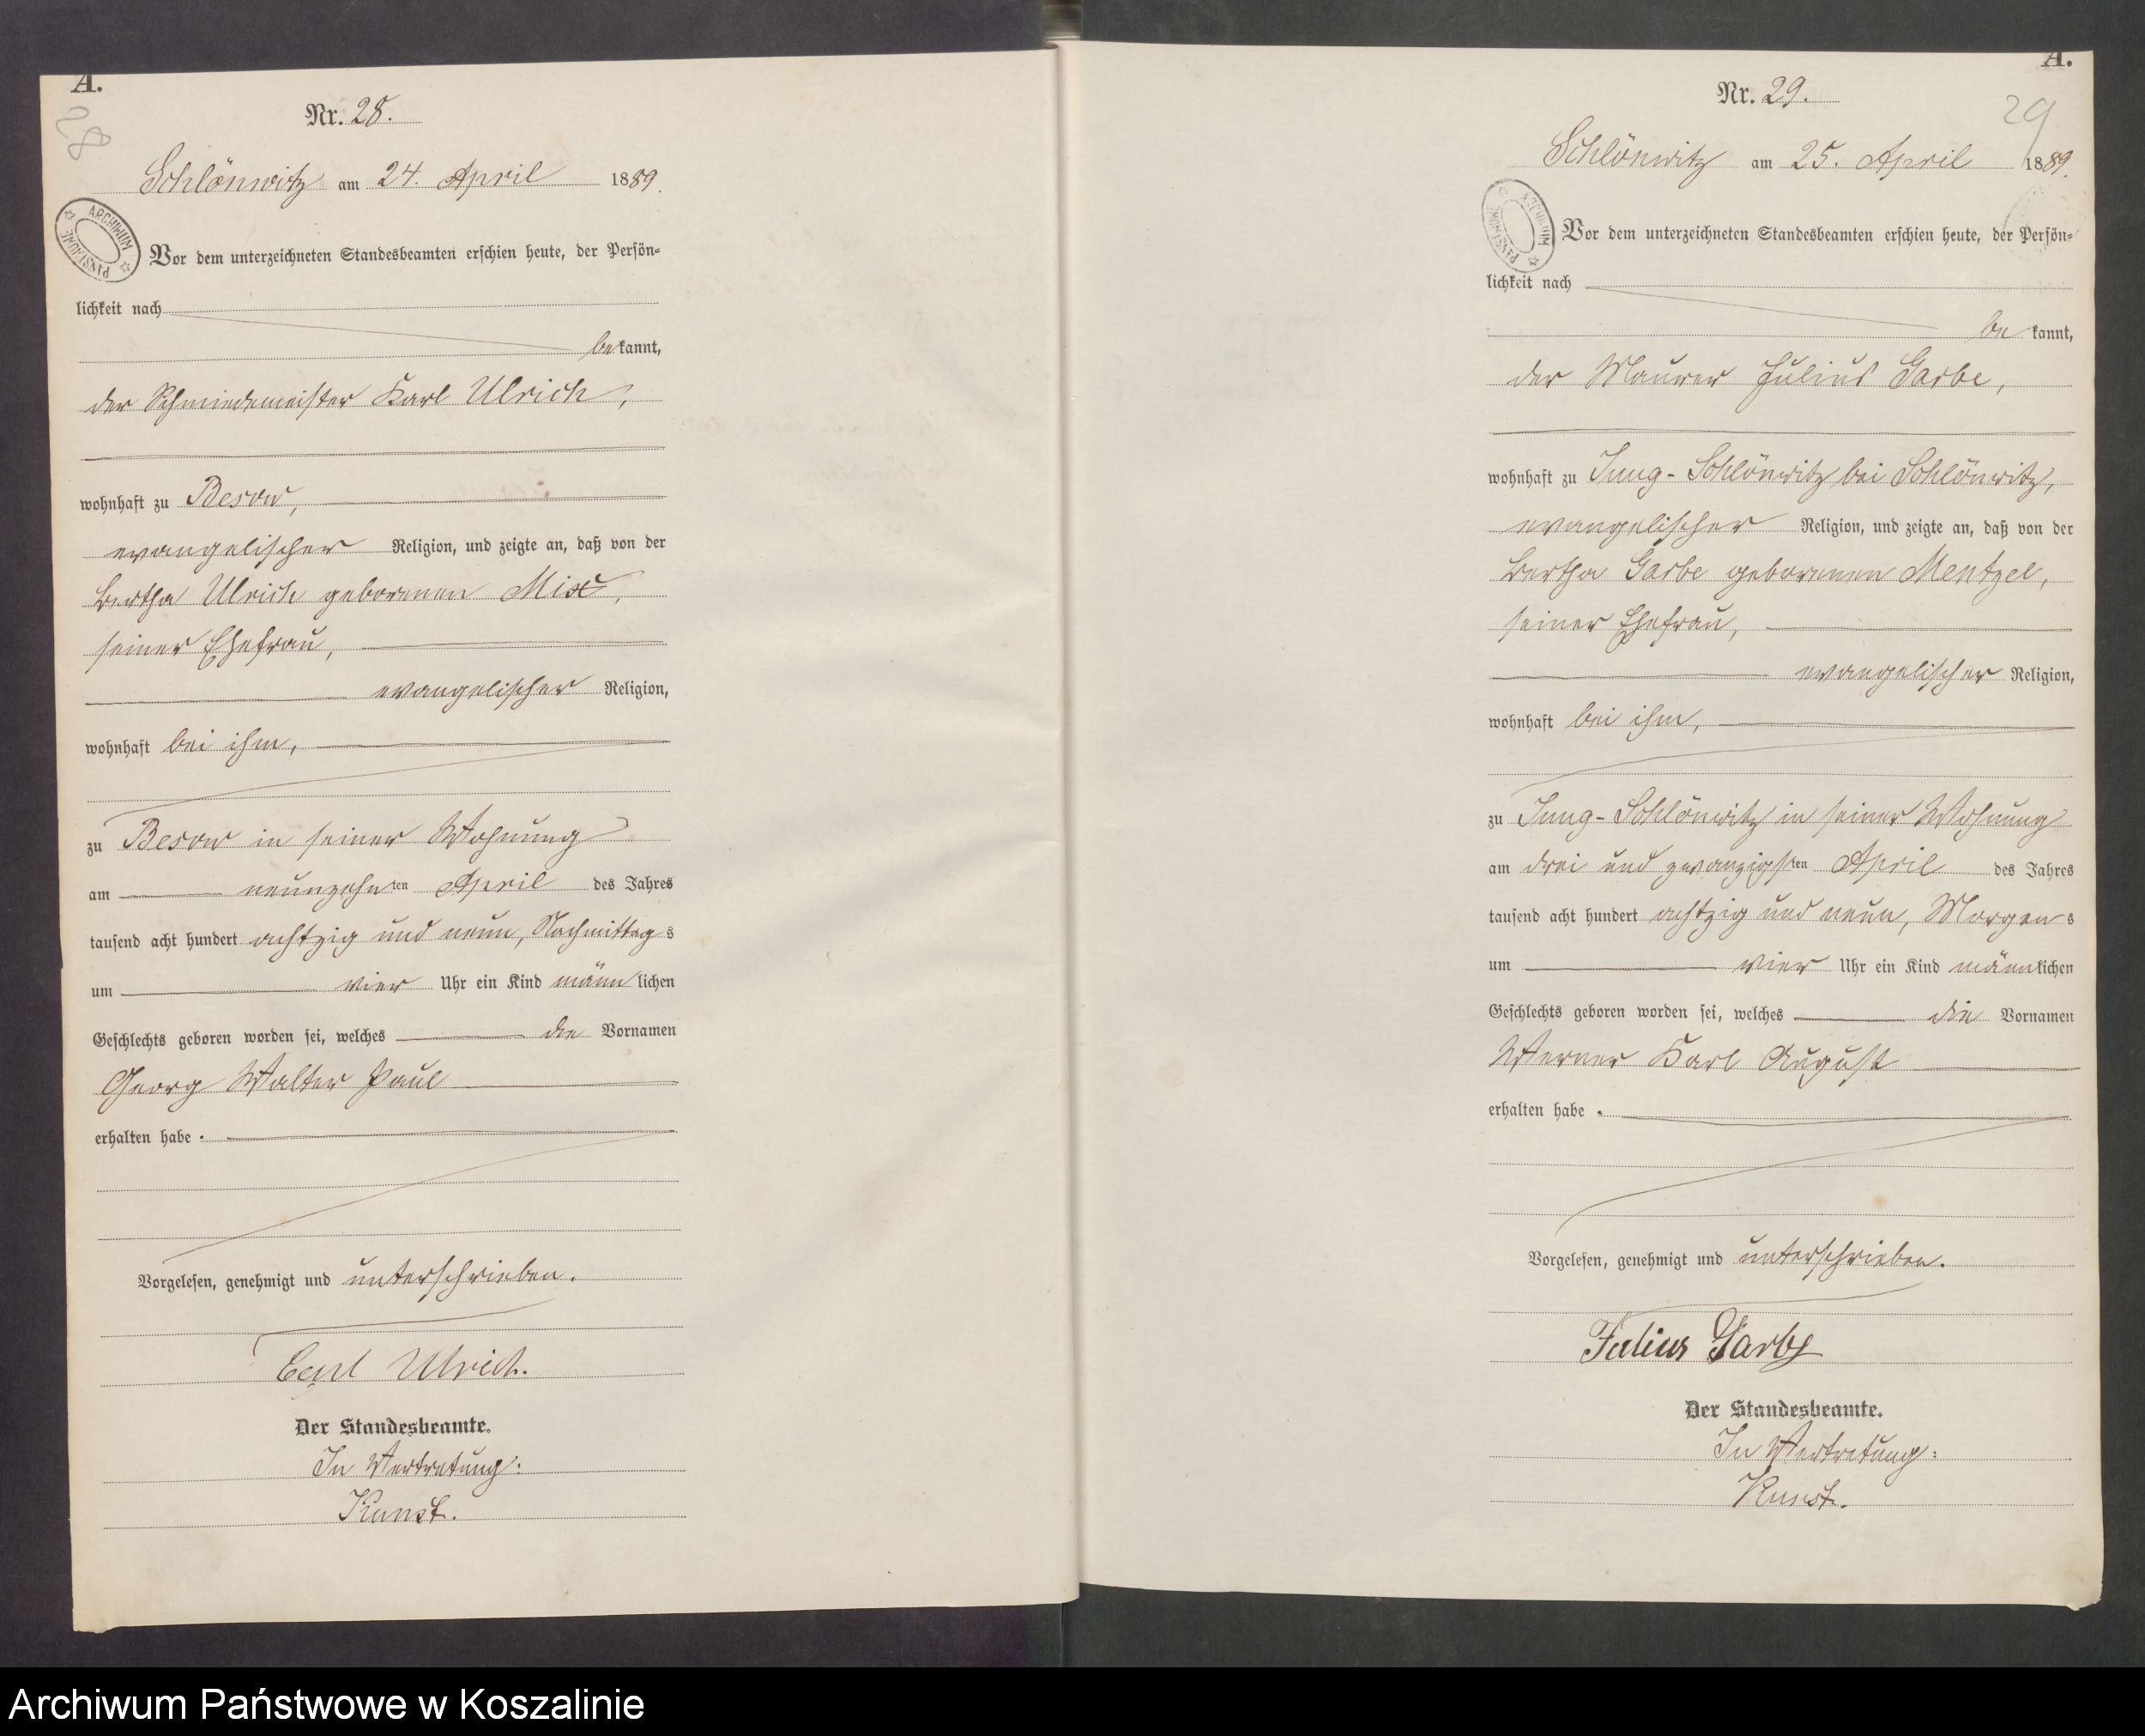 A.
28
Nr. 28.
Schlönwitz am 24. April 1889.
ARCHIWUM PAŃSTWOWE
Vor dem unterzeichneten Standesbeamten erschien heute, der Persön-
lichkeit nach
bekannt,
der Schmiedemeister Karl Ulrich,
wohnhaft zu Besow,
evangelischer Religion, und zeigte an, daß von der
Bertha Ulrich geborenen Mix,
seiner Ehefrau,
evangelischer Religion,
wohnhaft bei ihm,
zu Besow in seiner Wohnung
am neunzehnten April des Jahres
tausend acht hundert achtzig und neun, Nachmittags
um vier Uhr ein Kind männlichen
Geschlechts geboren worden sei, welches die Vornamen
Georg Walter Paul
erhalten habe.
Vorgelesen, genehmigt und unterschrieben.
Carl Ulrich.
Der Standesbeamte.
In Vertretung:
Kunst.
A.
29
Nr. 29.
Schlönwitz am 25. April 1889.
ARCHIWUM PAŃSTWOWE
Vor dem unterzeichneten Standesbeamten erschien heute, der Persön-
lichkeit nach
bekannt,
der Maurer Julius Garbe,
wohnhaft zu Jung-Schlönwitz bei Schlönwitz,
evangelischer Religion, und zeigte an, daß von der
Bertha Garbe geborenen Mentzel,
seiner Ehefrau,
evangelischer Religion,
wohnhaft bei ihm,
zu Jung-Schlönwitz in seiner Wohnung
am drei und zwanzigsten April des Jahres
tausend acht hundert achtzig und neun, Morgens
um vier Uhr ein Kind männlichen
Geschlechts geboren worden sei, welches die Vornamen
Werner Karl August
erhalten habe.
Vorgelesen, genehmigt und unterschrieben.
Julius Garbe
Der Standesbeamte.
In Vertretung:
Kunst.
Archiwum Państwowe w Koszalinie